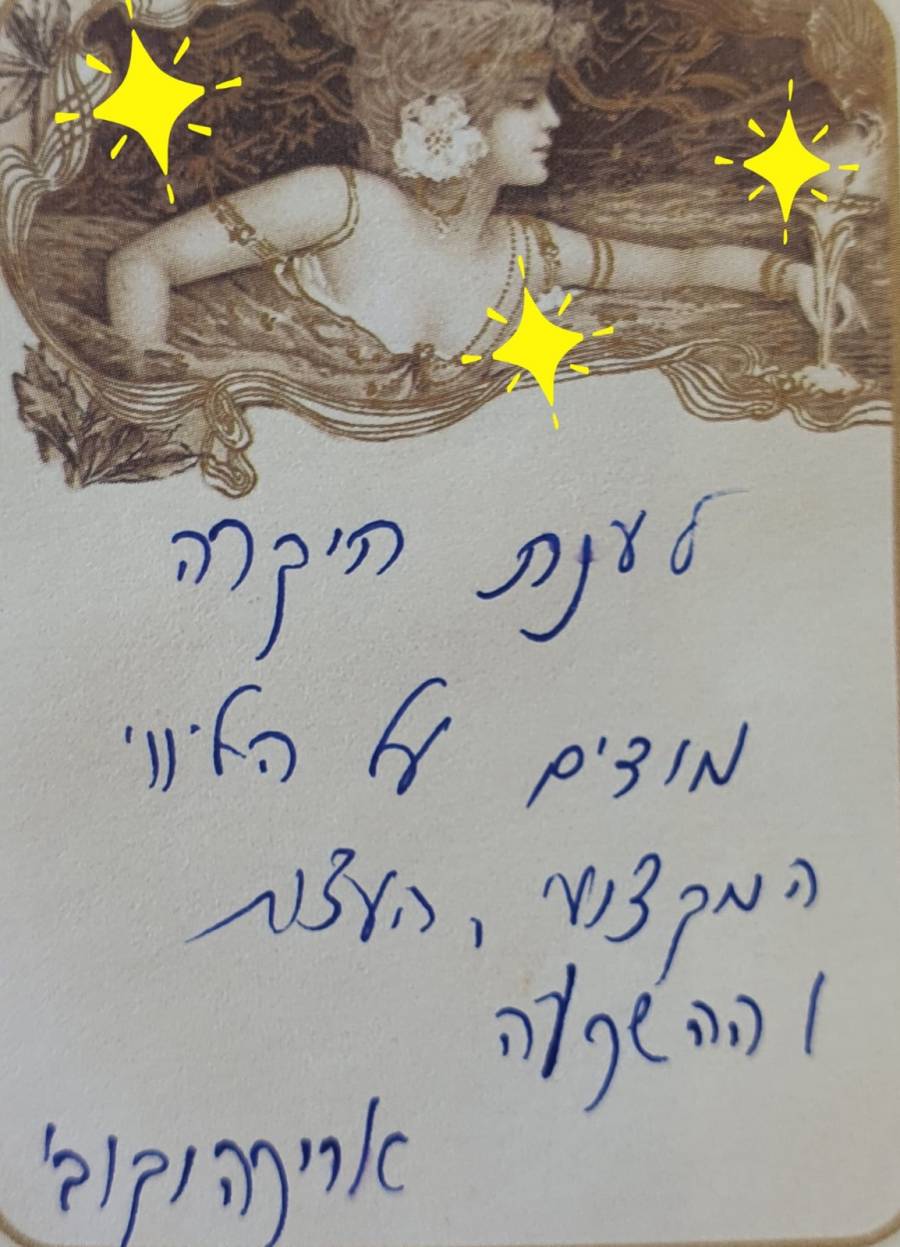 לענת היקרה
מודים על הליווי
המקצועי, העצות
וההשקעה
אריקה וקובי